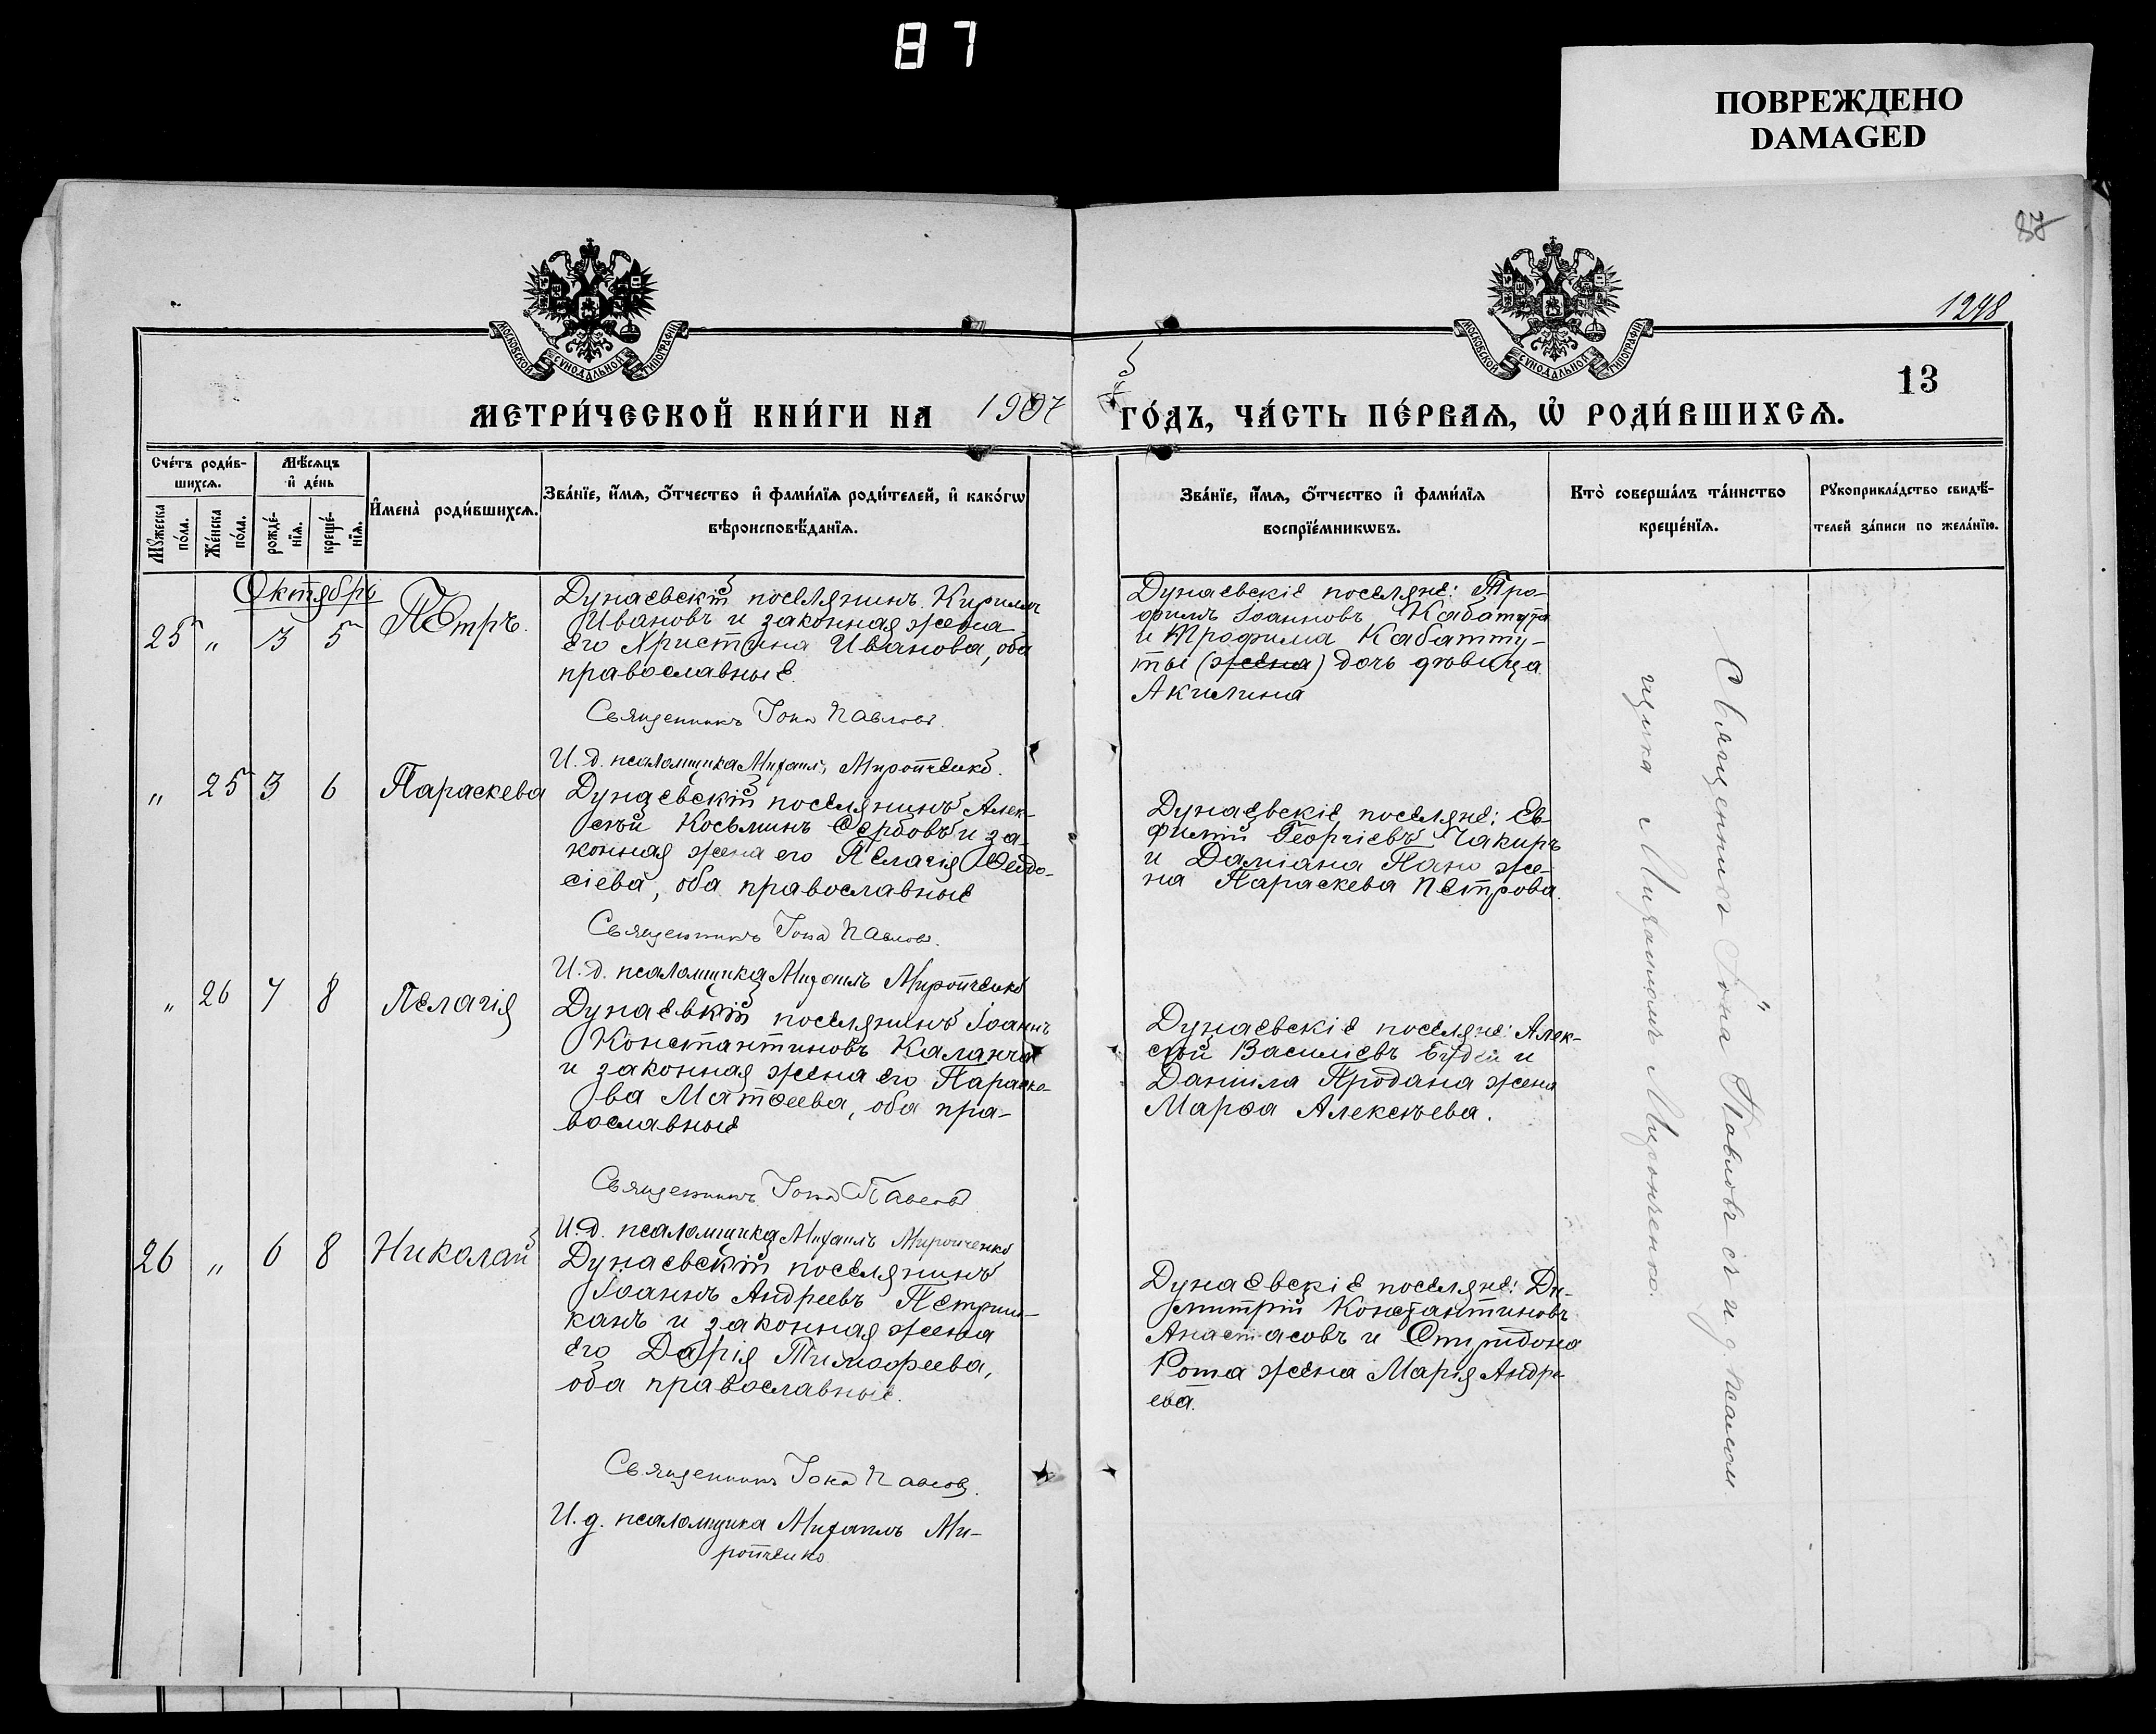 87
ПОВРЕЖДЕНО
DAMAGED
87
1298
13
МОСКОВСКОЙ СѴНОДАЛЬНОЙ ТИПОГРАФІИ
МОСКОВСКОЙ СѴНОДАЛЬНОЙ ТИПОГРАФІИ
МЕТРИ́ЧЕСКОЙ КНИ́ГИ НА 1907 ГО́ДЪ, ЧА́СТЬ ПЕ́РВАѦ, Ѡ҆ РОДИ́ВШИХСѦ.
Сче́тъ роди́в-
шихсѧ.
Мꙋжеска по́ла.
Же́нска по́ла.
Мѣ́сѧцъ
и҆ де́нь
рожде́-
нїѧ.
креще́-
нїѧ.
И҆мена̀ роди́вшихсѧ.
Зва́нїе, и҆́мѧ, ѻ҆́тчество и҆ фами́лїѧ роди́телей, и҆ како́гѡ
вѣроисповѣ́данїѧ.
Зва́нїе, и҆́мѧ, ѻ҆́тчество и҆ фами́лїѧ
воспрїе́мникѡвъ.
Кто̀ соверша́лъ та́инство
креще́нїѧ.
Рꙋкоприкла́дство свидѣ́-
телей за́писи по жела́нїю.
Октябрь
25 " 3 5 Петръ.
Дунаевскій поселянинъ Кириллъ
Ивановъ и законная жена
его Христина Иванова, оба
православные.
Священникъ Іона Павловъ.
И. д. псаломщика Михаилъ Миронченко.
Дунаевскіе поселяне: Тро-
филъ Іоанновъ Кабатута
и Трофима Кабатту-
ты (жена) дочь дѣвица
Акилина
" 25 3 6 Параскева
Дунаевскій поселянинъ Алек-
сѣй Косьминъ Сербовъ и за-
конная жена его Пелагія Ѳеодо-
сіева, оба православные
Священникъ Іона Павловъ.
И. д. псаломщика Михаилъ Миронченко
Дунаевскіе поселяне: Ев-
фимій Георгіевъ Чакиръ
и Даміана Пано же-
на Параскева Петрова.
" 26 7 8 Пелагія
Дунаевскій поселянинъ Іоаннъ
Константиновъ Каланча
и законная жена его Параске-
ва Матѳеева, оба пра-
вославные
Священникъ Іона Павловъ
И. д. псаломщика Михаилъ Миронченко
Дунаевскіе поселяне: Алек-
сѣй Василіевъ и
Даніила Продана жена
Марѳа Алексѣева.
26 " 6 8 Николай
Дунаевскій поселянинъ
Іоаннъ Андреевъ Петриш-
канъ и законная жена
его Дарія Тимоѳеева,
оба православные.
Священникъ Іона Павловъ.
И. д. псаломщика Михаилъ Ми-
ронченко
Дунаевскіе поселяне: Ди-
митрій Константиновъ
Анастасовъ и Спиридона
Рота жена Марія Андре-
ева.
Священникъ Іона Павловъ съ и д псалом
щика Михаиломъ Миронченко.